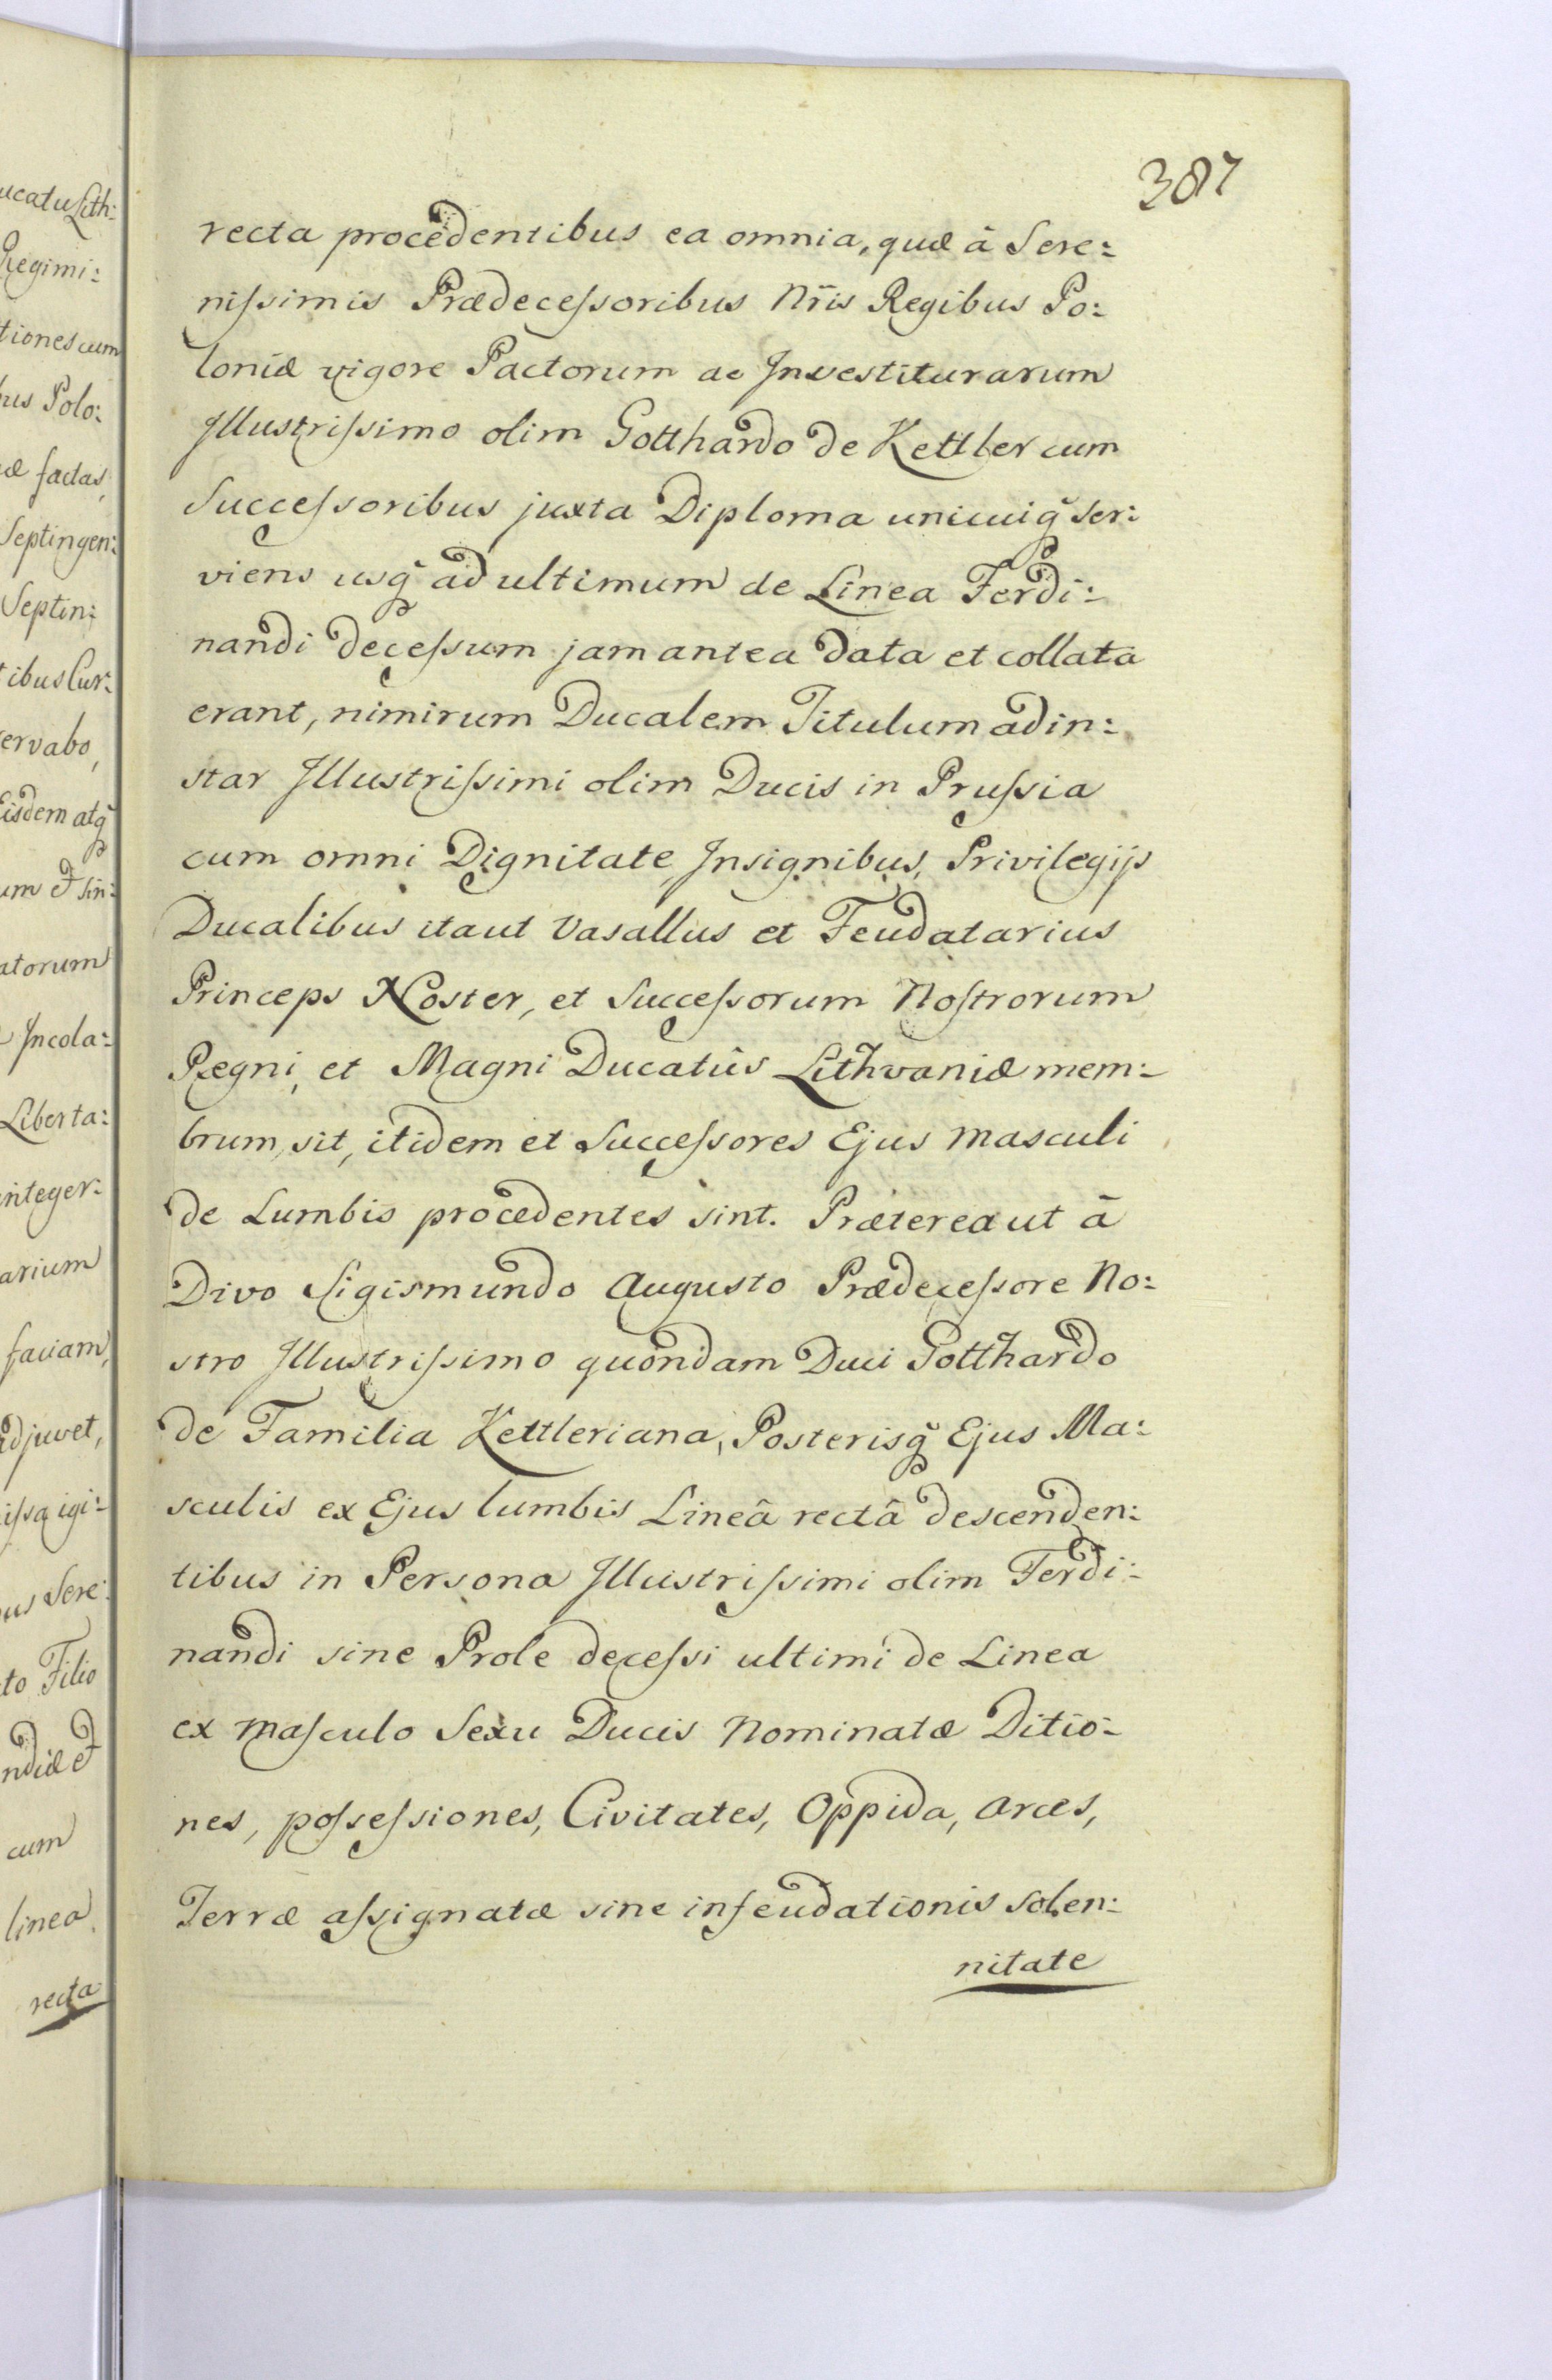 387
recta procedentibus ea omnia, quæ â Sere:
nissimis Prædecessoribus Nr̃is Regibus Po:
loniæ vigore Pactorum ac Investiturarum
Illustrissimo olim Gotthardo de Kettler cum
Successoribus juxta Diploma unicuiq̃ ser:
viens usq̃ ad ultimum de Linea Ferdi:
nandi decessum jam antea data et collata
erant, nimirum Ducalem Titulum ad in:
star Illustrissimi olim Ducis in Prussia
cum omni Dignitate, Insignibus, Privilegijs
Ducalibus itaut Vasallus et Feudatarius
Princeps Noster, et Successorum Nostrorum
Regni, et Magni Ducatûs Lithvaniæ mem:
brum, sit, itidem et Successores Ejus masculi
de Lumbis procedentes sint. Prætereaut â
Divo Sigismundo Augusto Prædecessore No:
stro Illustrissimo quondam Duci Gotthardo
de Familia Kettleriana, Posterisq̃ Ejus Ma:
sculis ex Ejus lumbis Lineâ rectâ descenden:
tibus in Persona Illustrissimi olim Ferdi:
nandi sine Prole decessi ultimi de Linea
ex masculo Sexu Ducis Nominatæ Ditio:
nes, possessiones, Civitates, Oppida, Arces,
Terræ assignatæ sine infeudationis solen:
nitate
ucatu Lith:
Regimi:
tiones cum
us Polo:
æ factas,
Septingen:
Septin:
tibus Cur:
ervabo,
Eisdem atq̃
um et sin:
atorum
Incola:
Liberta:
integer:
arium
faciam,
adjuvet,
issa igi:
us Sere:
to Filio
ndiæ et
cum
linea
recta